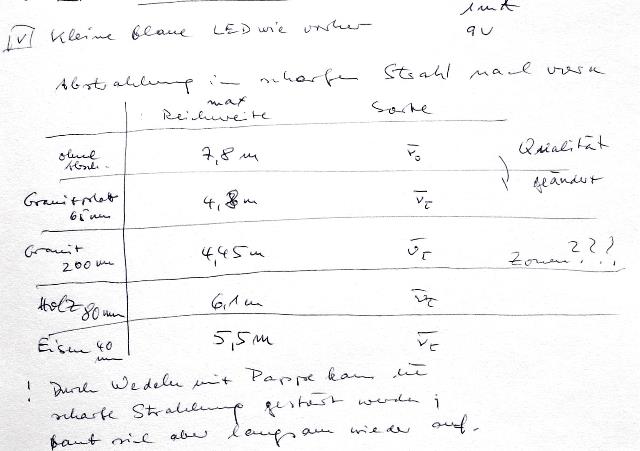 1mA
IV Kleine blaue LED wie vorher 9V
Abstrahlung in scharfem Strahl nach vorn
max
Reichweite Sorte
ohne Absch. 7,8 m ν̄₀ Qualität
geändert
Granitplatt 65 mm 4,8 m ν̄τ
Granit 200 mm 4,45 m ν̄τ Zonen ???
Holz 80 mm 6,1 m ν̄τ
Eisen 40 mm 5,5 m ν̄τ
! Durch Wedeln mit Pappe kann die
scharfe Strahlung gestört werden;
baut sich aber langsam wieder auf.